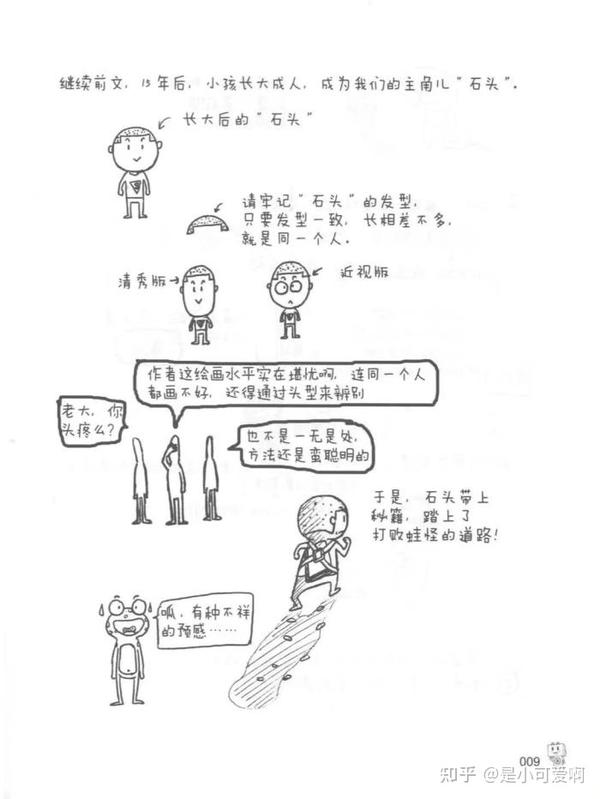 继续前文，15年后，小孩长大成人，成为我们的主角儿“石头”.
长大后的“石头”
请牢记“石头”的发型，
只要发型一致，长相差不多，
就是同一个人.
清秀版
近视版
作者这绘画水平实在堪忧啊，连同一个人
都画不好，还得通过头型来辨别
老大，你
头疼么？
也不是一无是处，
方法还是蛮聪明的
于是，石头带上
秘籍，踏上了
打败蛙怪的道路！
呱，有种不祥
的预感……
009
知乎 @是小可爱啊